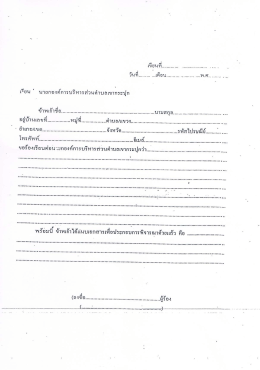 เขียนที่....................
วันที่........เดือน....................พ.ศ..........
เรียน นายกองค์การบริหารส่วนตำบลเขากระปุก
ข้าพเจ้าชื่อ........................................นามสกุล....................
อยู่บ้านเลขที่..........หมู่ที่..........ตำบล/แขวง....................
อำเภอ/เขต....................จังหวัด....................รหัสไปรษณีย์..........
โทรศัพท์....................
ขอร้องเรียนต่อนายกองค์การบริหารส่วนตำบลเขากระปุกว่า....................
พร้อมนี้ ข้าพเจ้าได้แนบเอกสารเพื่อประกอบการพิจารณาด้วยแล้ว คือ ..........
ลงชื่อ........................................ผู้ร้อง
(........................................)